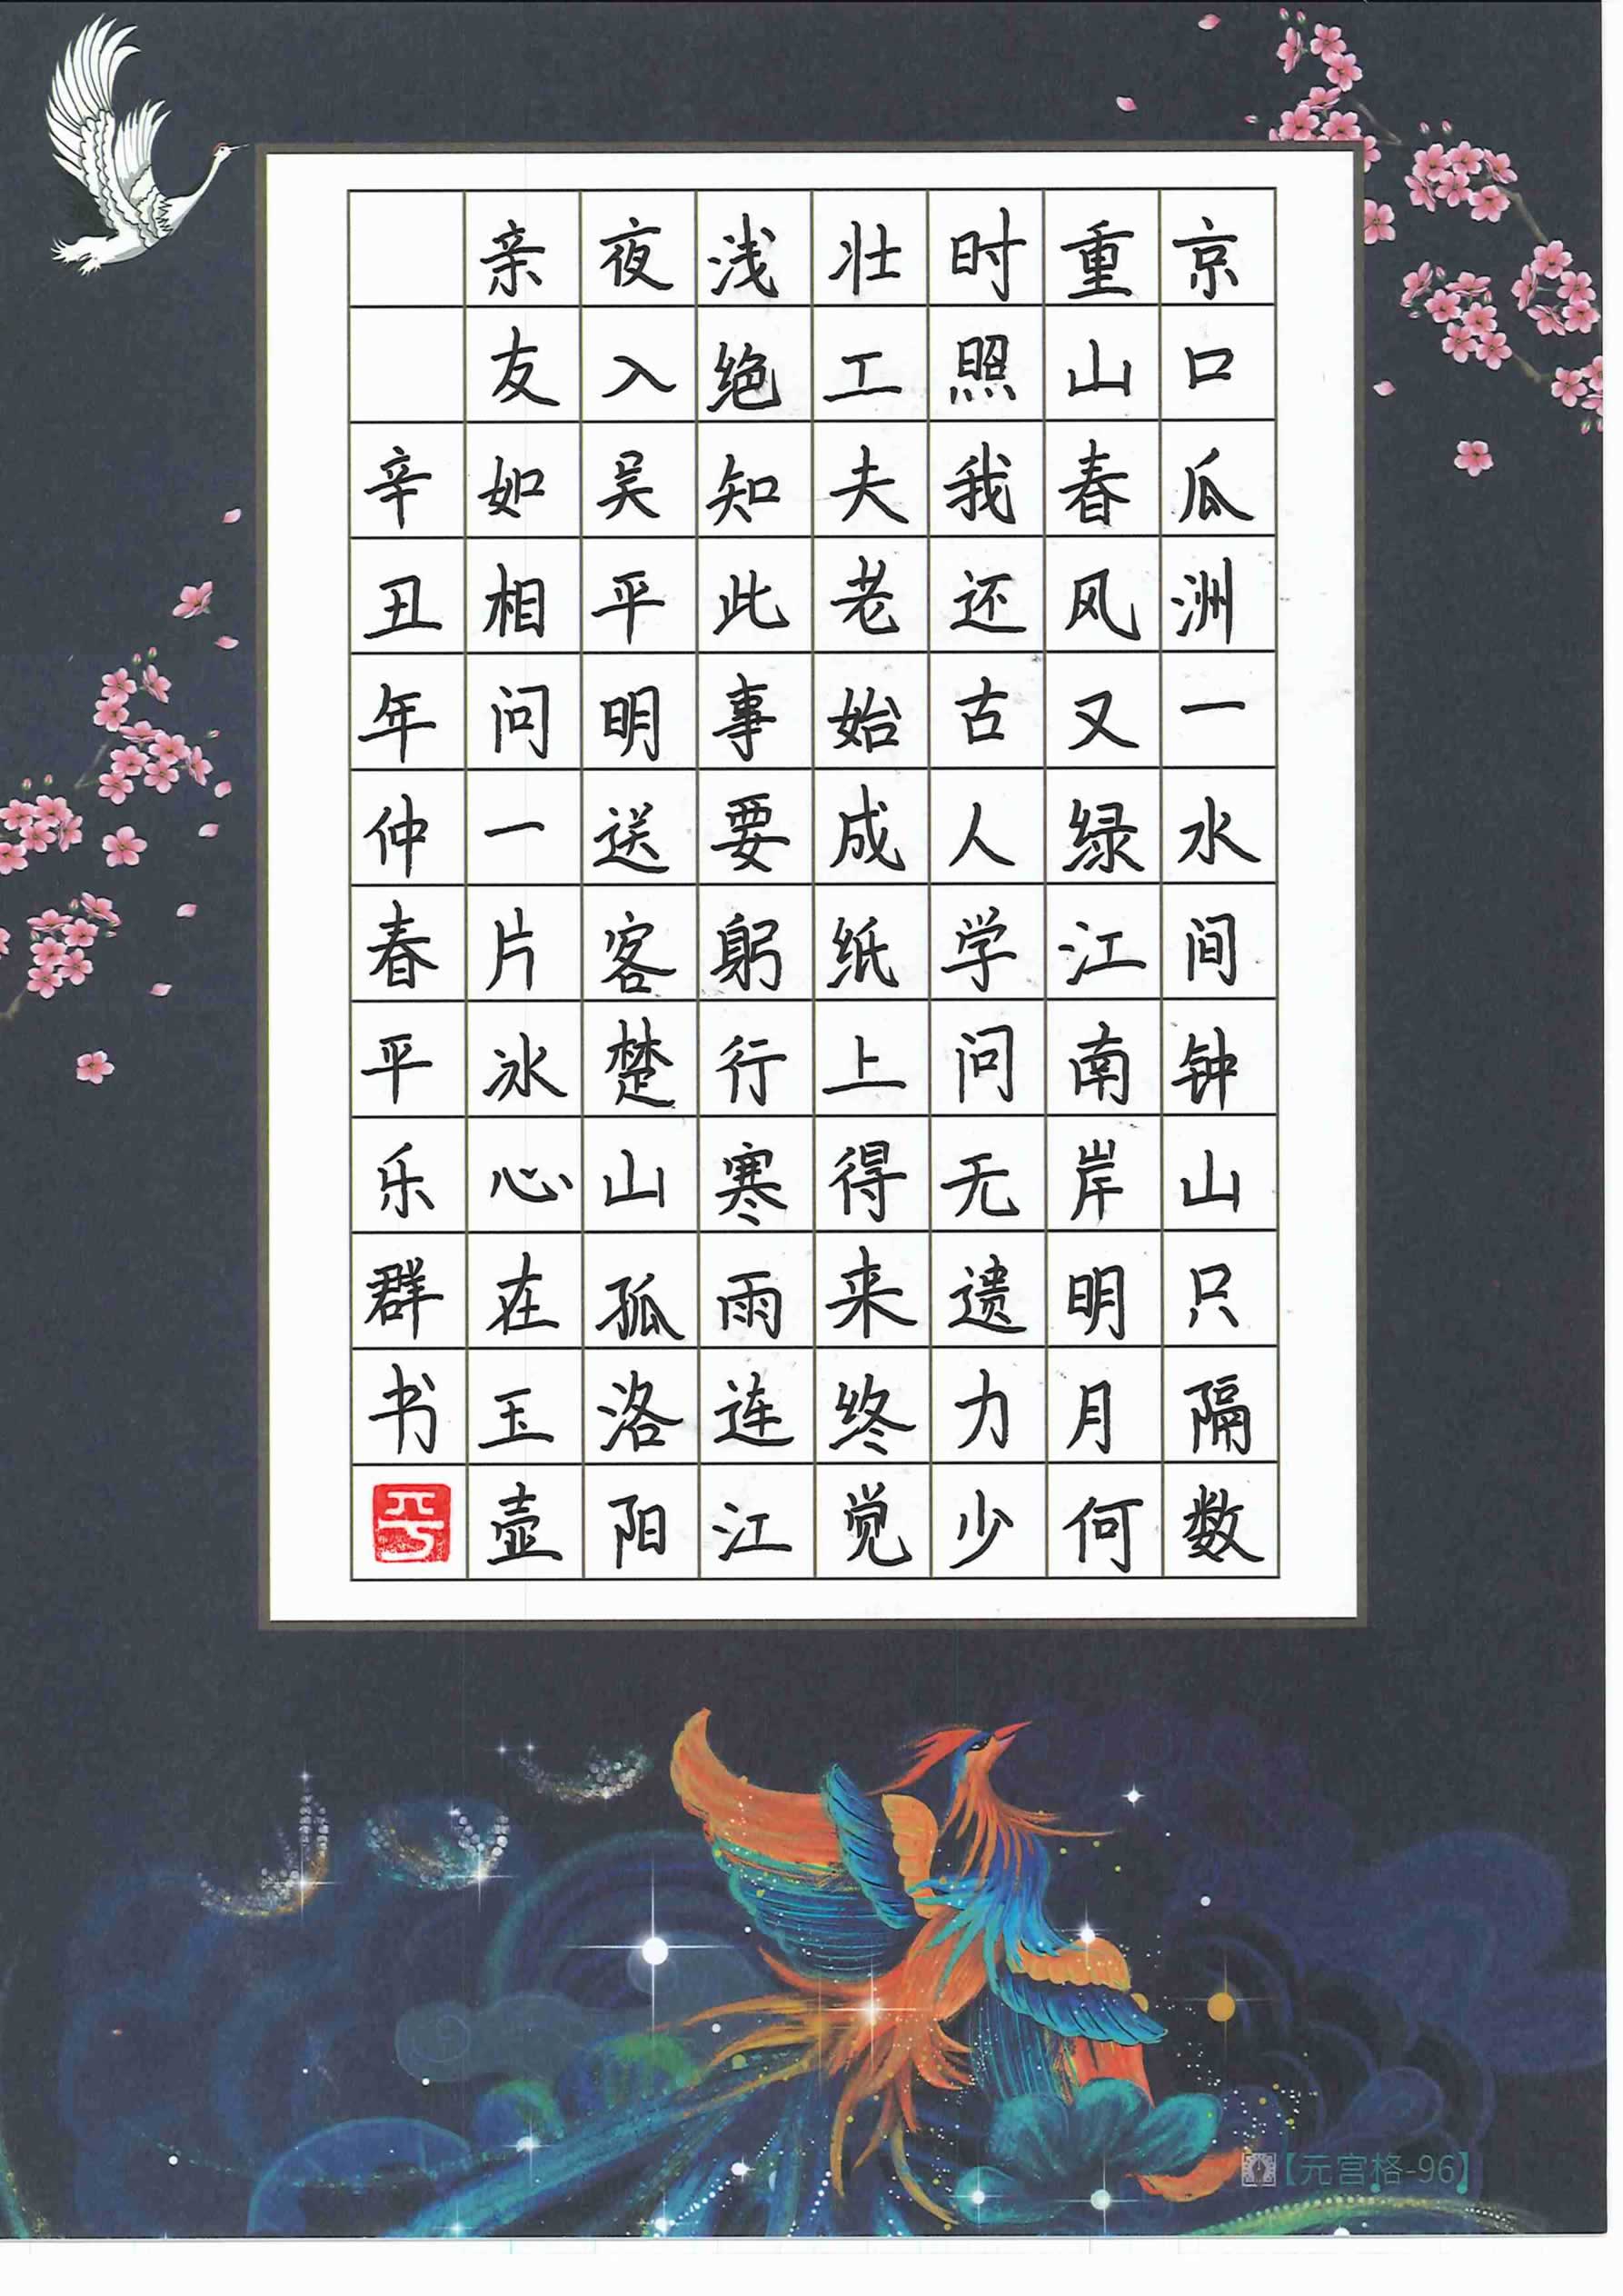 京口瓜洲一水间钟山只隔数
重山春风又绿江南岸明月何
时照我还古人学问无遗力少
壮工夫老始成纸上得来终觉
浅绝知此事要躬行寒雨连江
夜入吴平明送客楚山孤洛阳
亲友如相问一片冰心在玉壶
辛丑年仲春平乐群书
平
【元宫格-96】